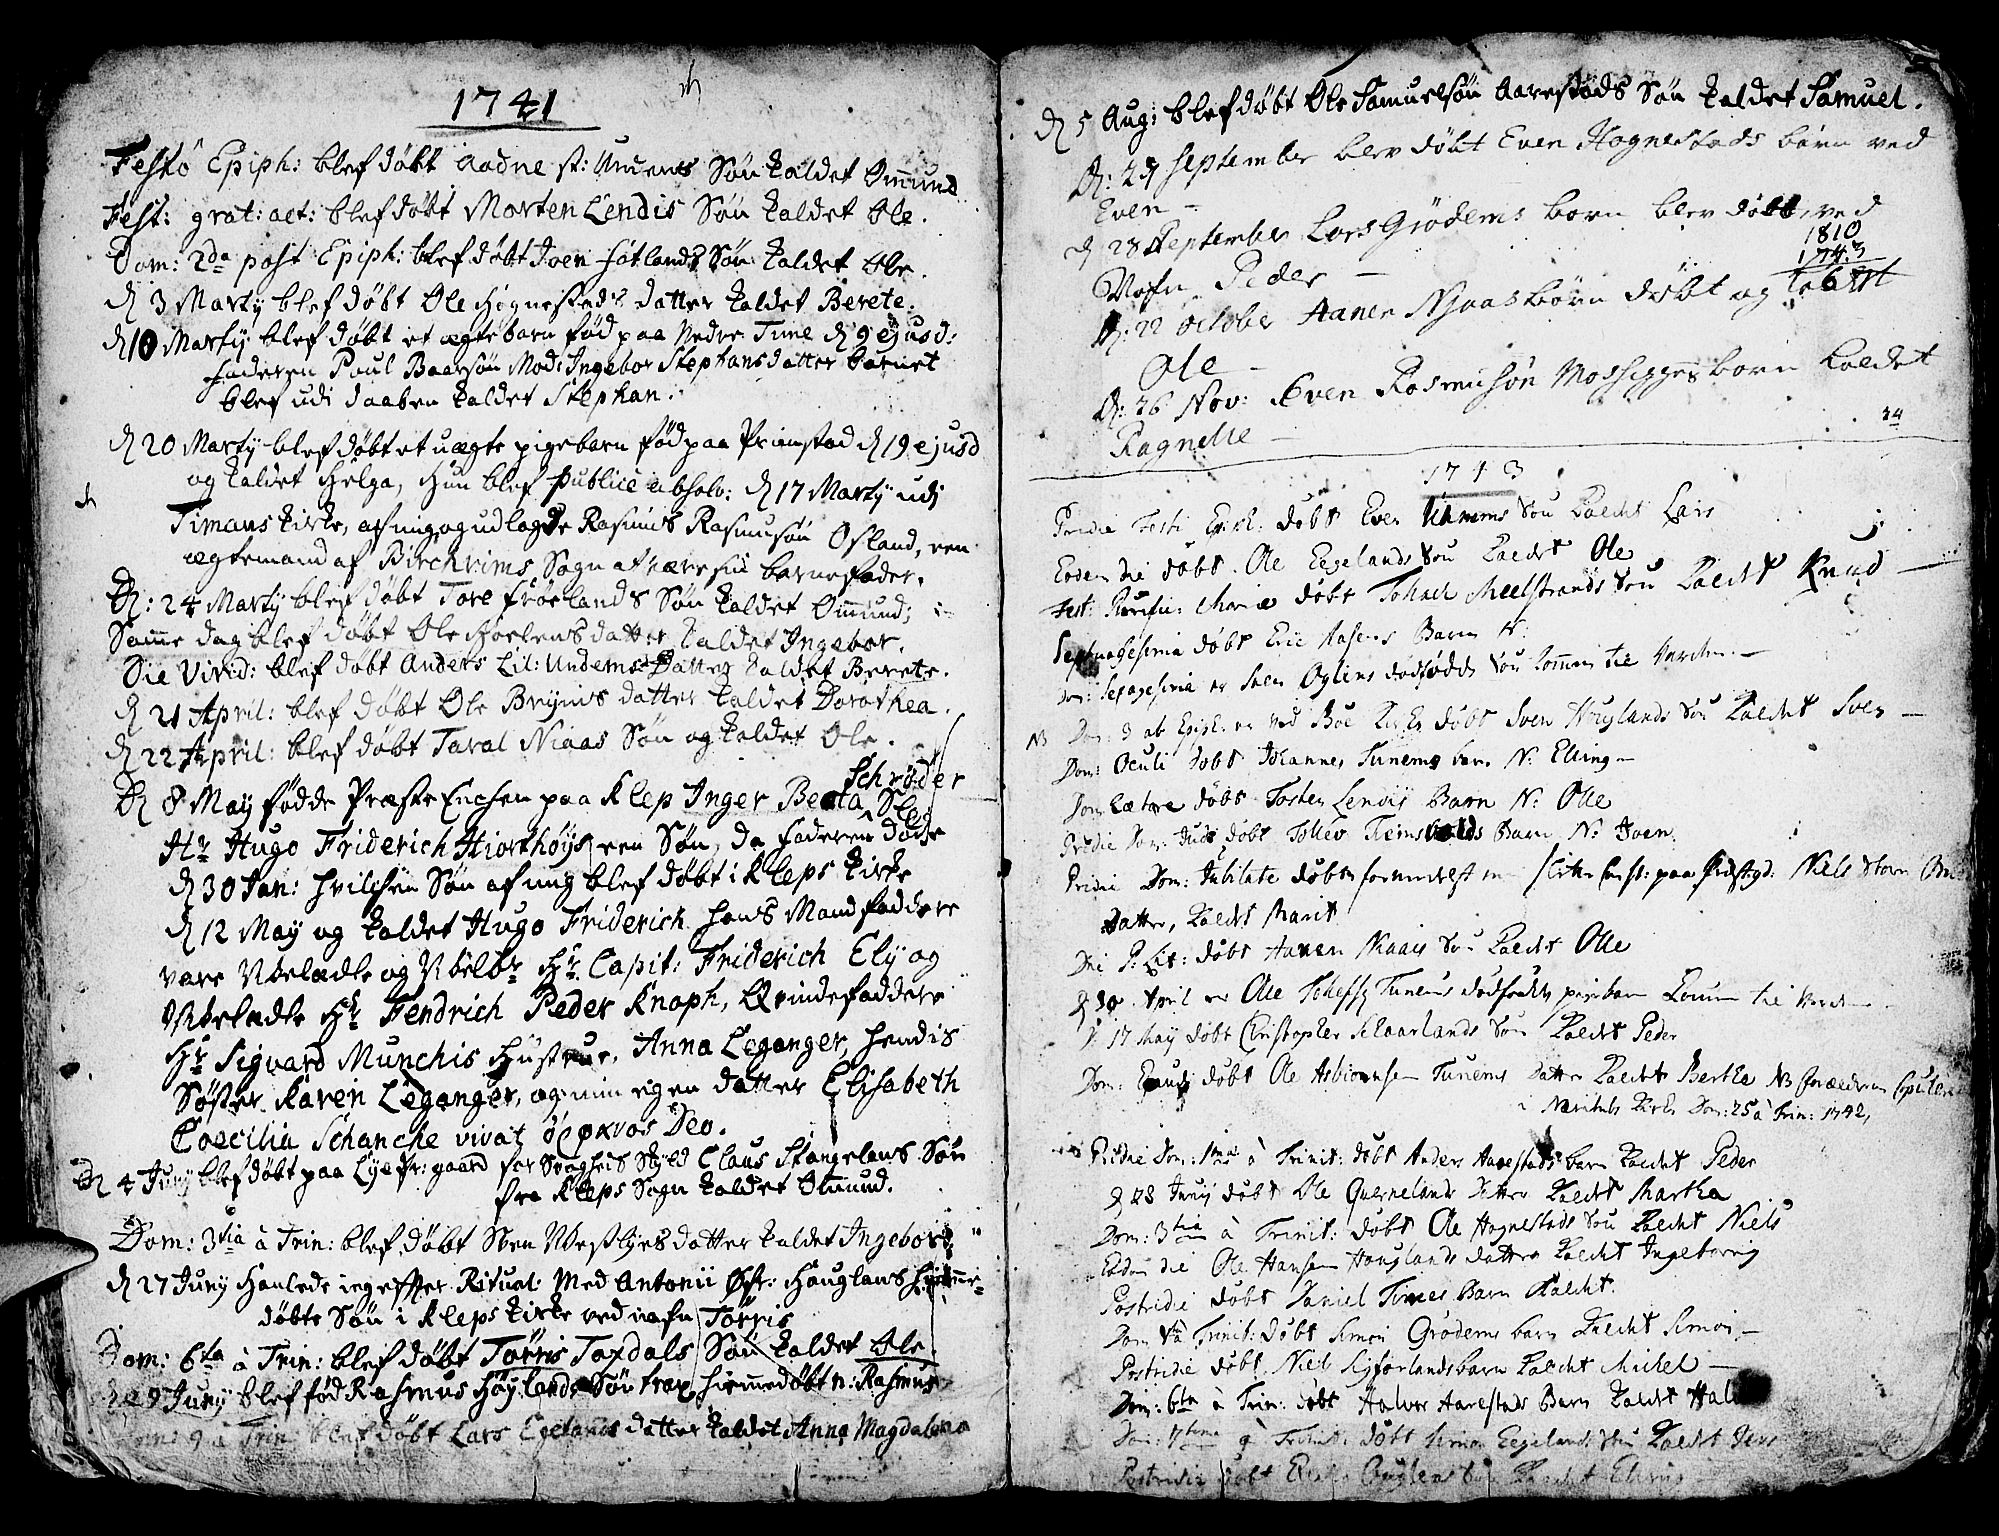 1741
Festo Epiph: blef døbt Aadne st: Undems Søn kaldet Omund
Fest: grat: act: blef døbt Morten Lendis Søn kaldet Ole.
Dom: 2da post Epiph: blef døbt Joen Høtlands Søn kaldet Ole.
D 3 Martij blef døbt Ole Hognestads datter kaldet Berete.
D 10 Martij blef døbt et ægte barn fød paa Nedre Time D 9 ejusd:
Faderen Poul Baarsøn Mod: Ingebor Stephansdatter barnet
blef udi daaben kaldet Stephan.
D 20 Martij blef døbt et uægte pigebarn fød paa Primstad D 19 ejusd
og kaldet Helga, hun blef publice absolv: D 17 Martij udj
Timans kirke, af mig, og udlagde Rasmus Rasmusøn Osland, een
ægtemand af Birchrims Sogn at være sin barnefader.
D: 24 Martij blef døbt Tore Frøelands Søn kaldet Omund;
Samme dag blef døbt Ole Hoelens datter kaldet Ingebor.
Die Virid: blef døbt Anders Lil: Undems Datter kaldet Berete.
D 21 April: blef døbt Ole Brynis datter kaldet Dorothea.
D 22 April: blef døbt Taral Niaas Søn og kaldet Ole.
Schrøder
D 8 May fødde Præste Enchen paa Klep Inger Beata Sl:
Hr Hugo Friderich Hiorthøys een Søn, da Faderen døde
D 30 Jan: hvilchen Søn af mig blef døbt i Kleps kirke
D 12 May og kaldet Hugo Friderich hans Mandfaddere
vare Velædle og Velbr Hr. Capit: Friderich Ely og
Velædle Hr Fendrich Peder Knoph, Qvindefaddere
Hr Sigvard Munchis Hustrue, Anna Leganger, hendis
Søster Karen Leganger, og min egen datter Elisabeth
Coecilia Schanche vivat Deo.
D 4 Junij blef døbt paa Lye Pr: gaard for Svagheds Skyld Claus Stangelans Søn
fra Kleps Sogn kaldet Omund.
Dom: 3tia à Trin: blef døbt Sven Vestlyes datter kaldet Ingebor
D 27 Junij Handlede ieg effter Ritual: Med Antonii Østr: Hauglans hiemme-
døbte Søn i Kleps kirke ved nafn Tørris
Dom: 6ta à Trin: blef døbt Tørris Taxdals Søn kaldet Ole
29 Junij blef fød Rasmus Høylands Søn hiemedøbt n: Rasmus
9 à Trin: blef døbt Lars Egelands datter kaldet Anna Magdalena
D 5 Aug: blef døbt Ole Samuelsøn Aarestads Søn kaldet Samuel.
D: 27 September blev døbt Even Hognestads børn ved
Even -
D 28 September Lars Grødems born blev døbt, ved
Nafn Peder -
1810
1743
D: 22 October Aanen Njaas børn døbt og
Ole -
D: 26 Nov: Even Rasmusøn Mossiges born kaldet
Ragnelle -
1743
Pridie Festi Epiph: døbt Even Søn kaldt Lars
Eodem die døbt Ole Eegelands Søn kaldt Ole
Fest: Purific: Mariæ døbt Tollach Meelstrands Søn kaldt Knud
Septuagesima døbt Eric Aasens Barn N.
Dom: Sexagesima er Sven Oglens dødfødde Søn kommen til Jorden.-
NB Dom: 3 ab Epiph: er ved Boe kirke døbt Sven Huglands Søn kaldt Sven -
Dom: Oculi døbt Johannes Tunems barn N: Elling -
Dom: Lætare døbt Tosten Lendis Barn N: Olle
Pridie Dom: Judi: døbt Tollev Tiemslands Barn N: Joen
Pridie Dom: Jubilate døbt Niels Store
Datter, kaldt Marit
Die P: Lit: døbt Aanen Niaas Søn kaldt Olle
D 30 April er Olle Tunems dødfødde pigebarn kommen til Jorden
D 17 May døbt Christopher Schaarlands Søn kaldt Peder
Dom: Exaudi døbt Ole Asbiørnsen Tunems Datter kaldt Berthe NB forældrene Copulerede
i kirke Dom: 25 à Trin: 1742,
Pridie Dom: 1ma à Trinit: døbt Anders Aarestads barn kaldt Peder
D 28 Junij døbt Ole Quernelands Datter kaldt Martha
Dom: 3tia à Trinit: døbt Ole Hognestads Søn kaldt Niels
Eodem die Ole Hansen Houglands datter kaldt Ingeborrig
Postridie døbt Daniel Times Barn kaldt.
Dom à Trinit: døbt Simon Grødems barn kaldt Simon -
Postridie døbt Niels barn kaldt Michel -
Dom: 6ta à Trin: døbt Halvor Aarestads Barn kaldt Hal
Dom: 7tima à Trinit: døbt Simon Eegelands Søn kaldt Jens
Postridie døbt Søn kaldt Elling